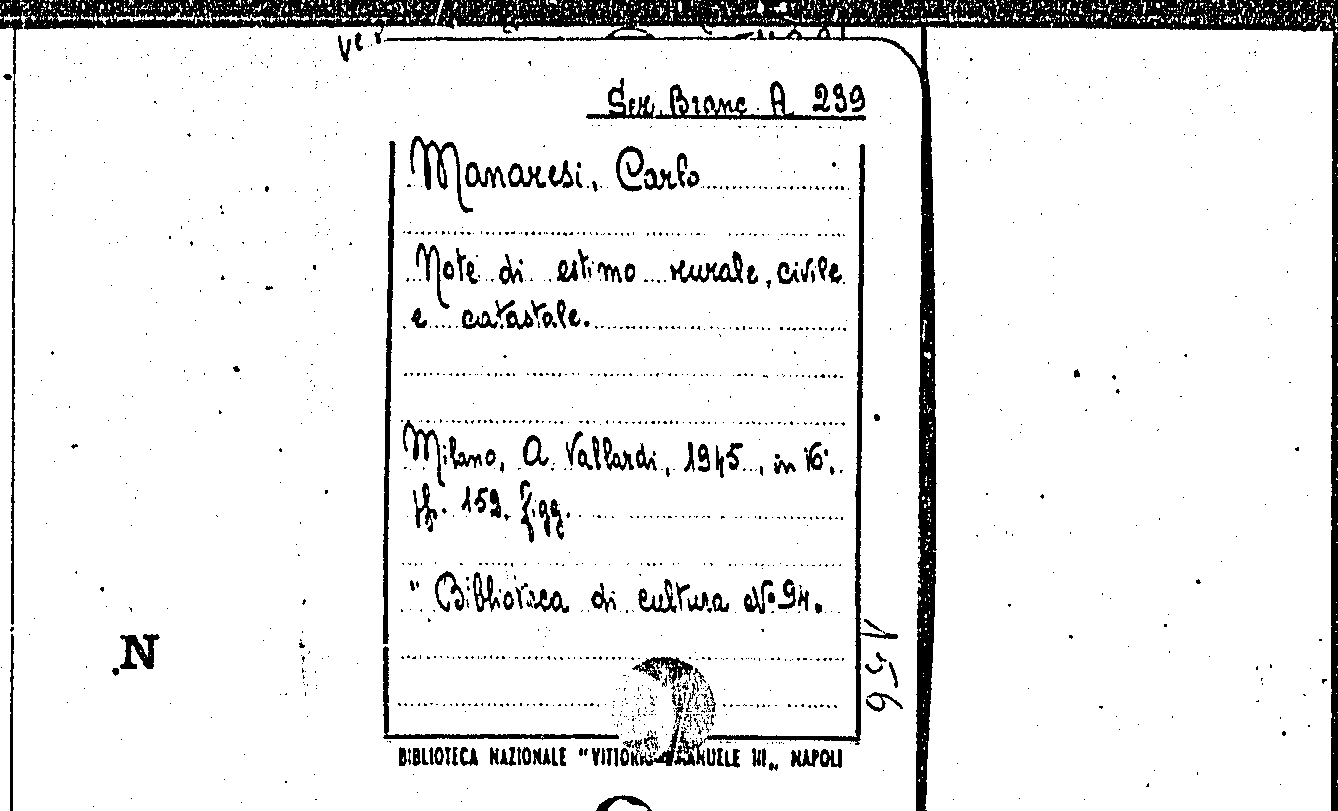 Ser. Branc. A 239
Manaresi, Carlo
Note di estimo rurale, civile
e catastale.
Milano, A. Vallardi, 1945, in 16°.
pp. 159. figg.
" Biblioteca di cultura N° 94.
156
N
BIBLIOTECA NAZIONALE "VITTORIO EMANUELE III„ NAPOLI